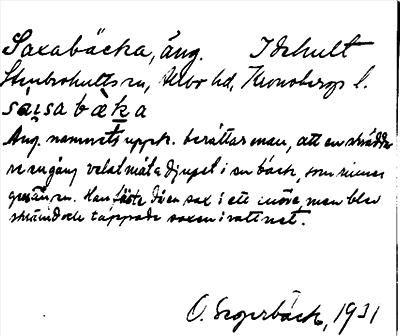 Saxabäcka, äng. Idhult
Stenbrohults sn, Allbo hd, Kronobergs l.
saksabäka
Ang. namnets uppk. berättar man, att en skrädda-
re en gång velat mäta djupet i en bäck, som rinner
gränsen. Han fäste då en sax i ett snöre, men blev
skrämd och tappade saxen i vattnet.
O. Segerbäck, 1931